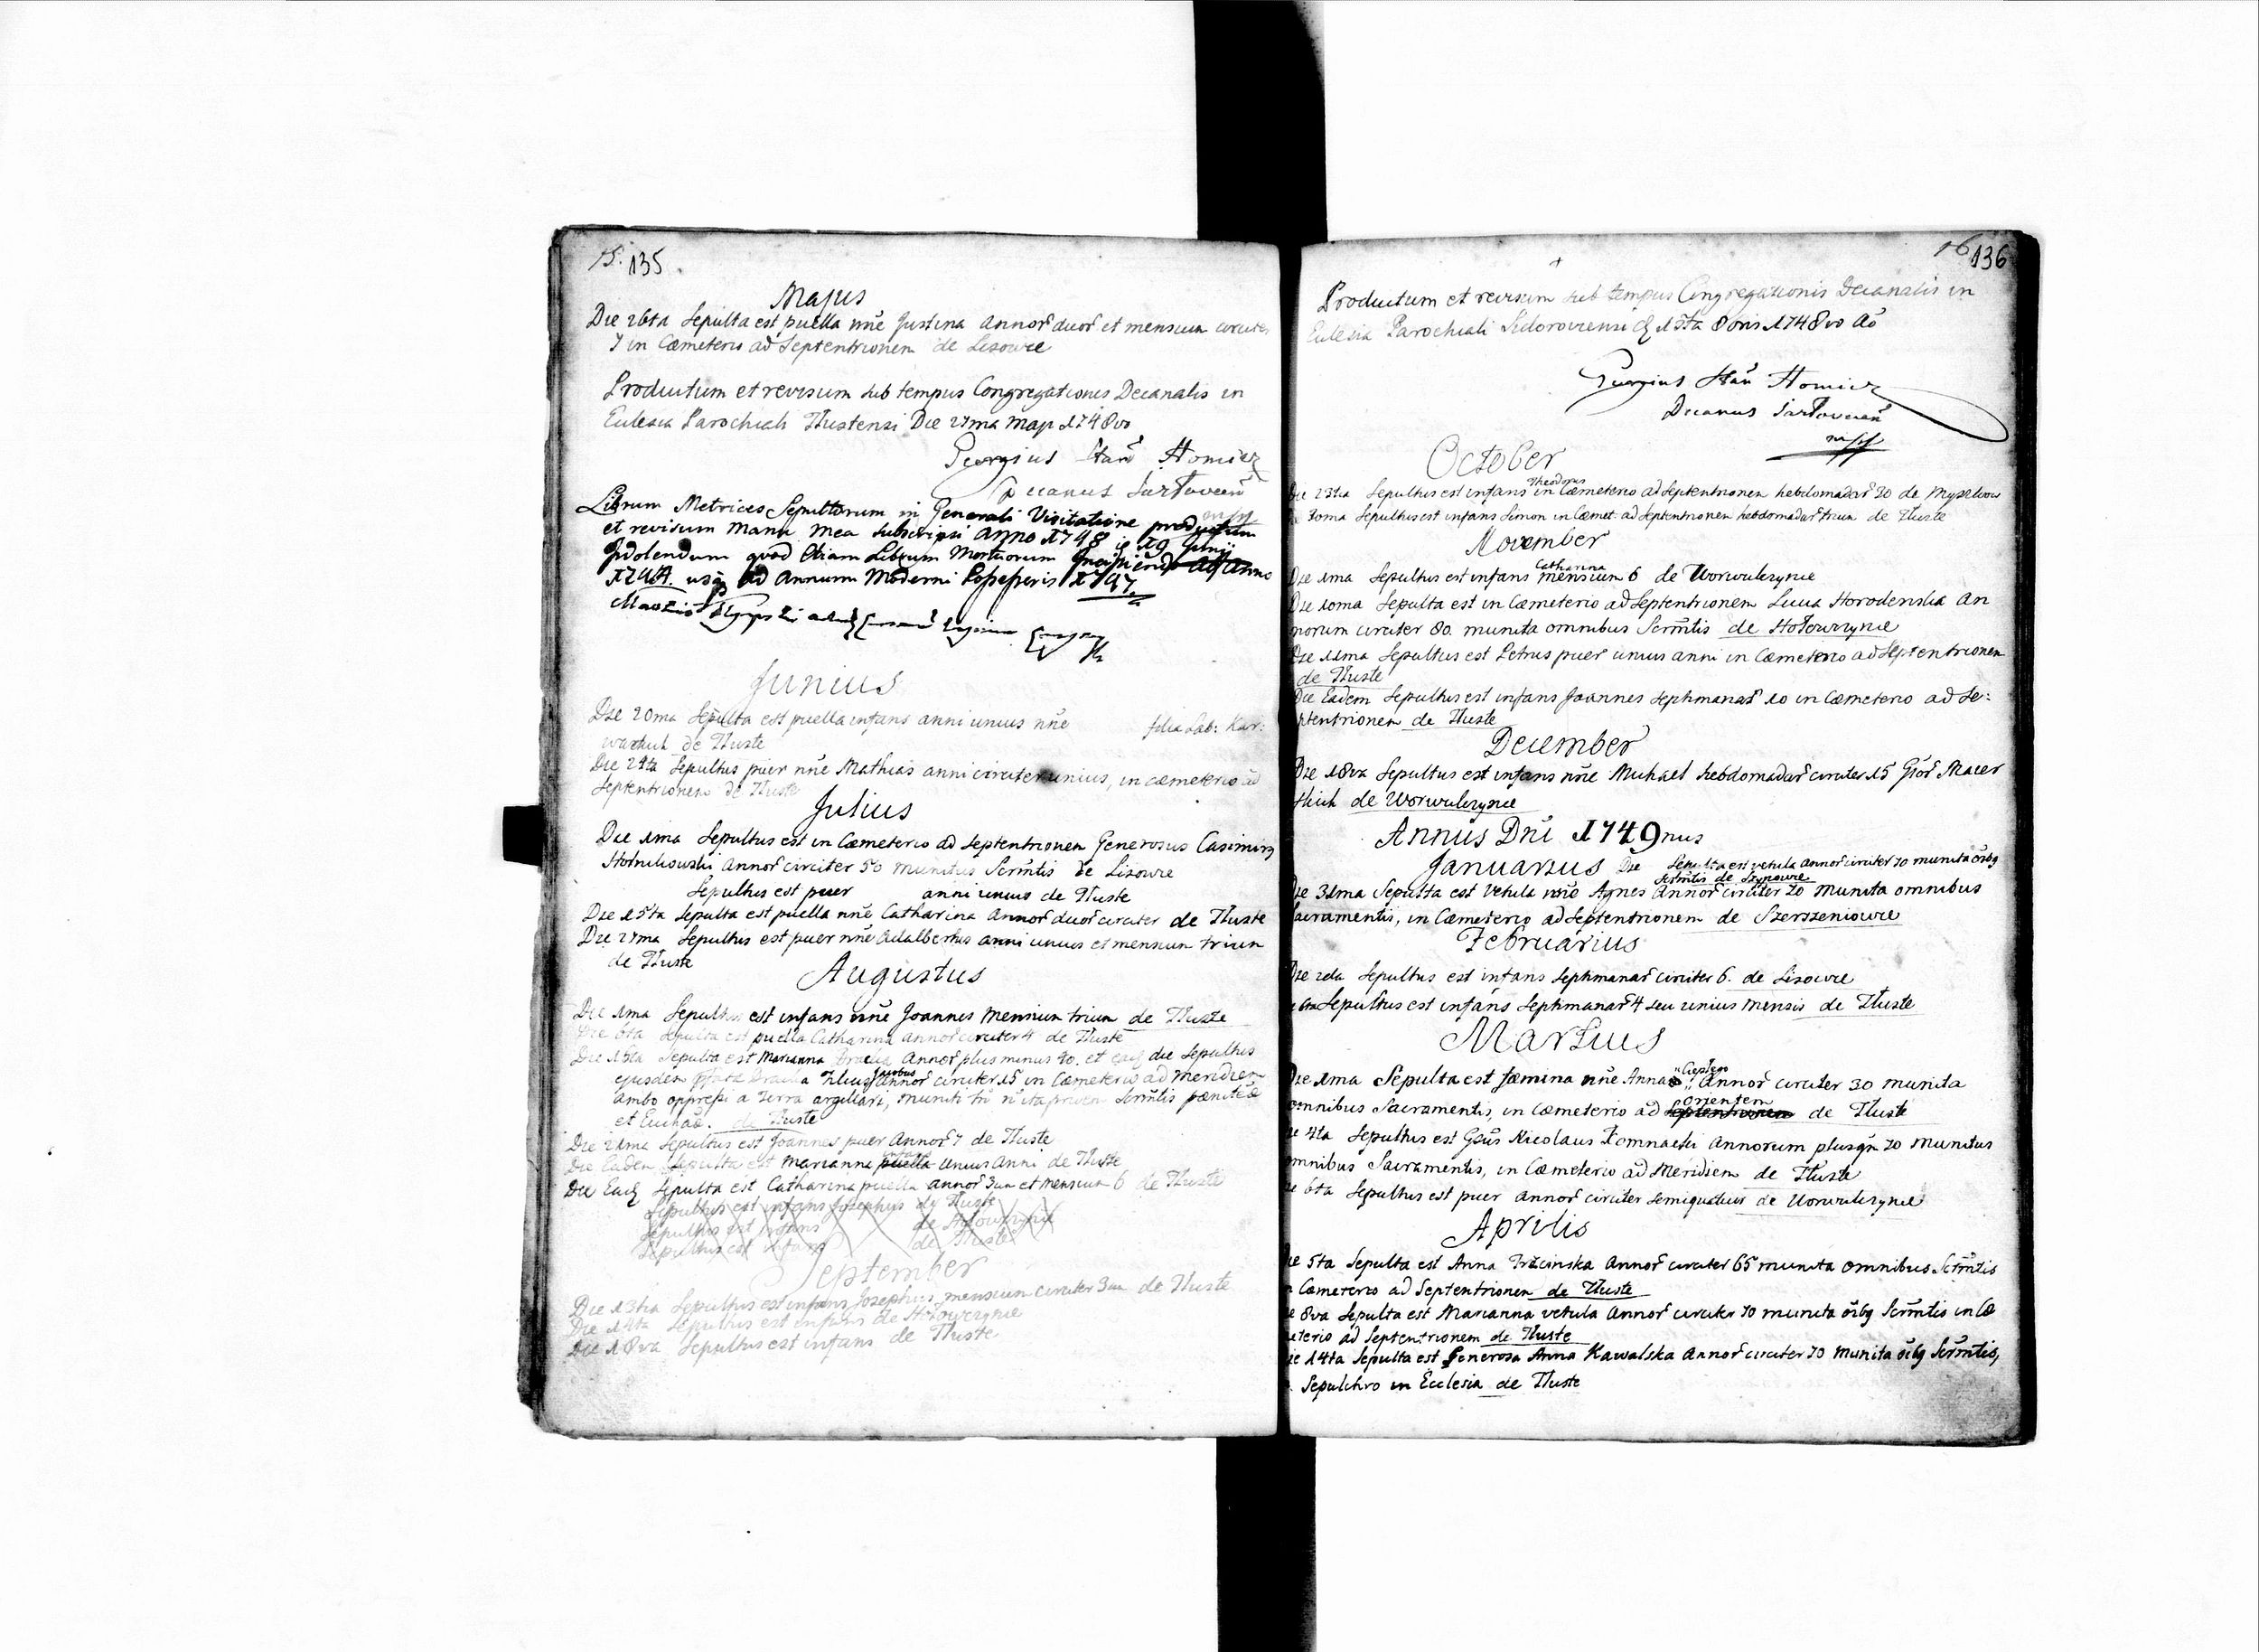 15. 135.
Majus
Die 26ta Sepulta est puella nñe Justina Annor duor et mensium circiter
7 in Cæmeterio ad Septentrionem de Lisowce
Productum et revisum sub tempus Congregationis Decanalis in
Eclesia Parochiali Tłustensi Die 27ma Maji 1748vo
Georgius Stan Homicz
Decanus Jazłovecen
mpp
Librum Metrices Sepultorum in Generali Visitatione productum
et revisum Manu mea subscripsi Anno 1748 19 Junij
Indolendum quod Etiam Librum Mortuorum Incipiendo ab Anno
usq ad Annum Moderni Possessoris 1747
Junius
Die 20ma Sepulta est puella infans anni unius nñe filia Lab: Kar:
waczuk de Tłuste
Die 24ta Sepultus puer nñe Mathias anni circiter unius, in cæmeterio ad
Septentrionem de Tłuste
Julius
Die 1ma Sepultus est in Cæmeterio ad Septentrionem Generosus Casimirg
annor circiter 50 munitus Scrmtis de Lisowce
Sepultus est puer anni unius de Tłuste
Die 15ta Sepulta est puella nñe Catharina Annor duor circiter de Tłuste
Die 27ma Sepultus est puer nñe Adalbertus anni unius et mensium trium
de Tłuste
Augustus
Die 1ma Sepultus est infans nñe Joannes Mensium trium de Tłuste
Die 6ta Sepulta est puella Catharina annor circiter 4 de Tłuste
Die Sepulta est Marianna annor plus minus 40. et eaq die Sepultus
ejusdem Filius Jacobus annor circiter 15 in Cæmeterio ad Meridiem
ambo oppressi a terra argillari, muniti Scrmtis
et . de Tłuste
Die 21ma Sepultus est Joannes puer Annor 7 de Tłuste
Die Eadem Sepulta est Marianna puella unius Anni de Tłuste
Die Eadq Sepulta est Catharina puella annor 3um et mensium 6 de Tłuste
Sepultus est infans Josephus de Tłuste
Sepultus est infans de Hołowczynce
Sepultus est infans de Tłuste
September
Die 13tia Sepultus est infans Josephus mensium circiter 3um de Tłuste
Die 14ta Sepultus est infans de Hołowczynce
Die 18va Sepultus est infans de Tłuste
16 136
Productum et revisum sub tempus Congregationis Decanalis in
Eclesia Parochiali Sidoroviensi 15ta 8bris 1748vo Ao
Georgius Stan Homicz
Decanus Jazłovecen
mpp
October
Die 23tia Sepultus est infans Theodorus in Cæmeterio ad Septentrionem hebdomadar 30 de Myszkow
30ma Sepultus est infans Simon in Cæmet ad Septentrionem hebdomadar trium de Tłuste
November
Die 1ma Sepultus est infans Catharina mensium 6 de Worwulczynce
Die 10ma Sepulta est in Cæmeterio ad Septentrionem Lucia Horodenska An
norum circiter 80. munita omnibus Scrmtis de Hołowczynce
Die 11ma Sepultus est Petrus puer unius anni in Cæmeterio ad Septentrionem
de Tłuste
Die Eadem Sepultus est infans Joannes Septimanar 10 in Cæmeterio ad Se:
ptentrionem de Tłuste
December
Die 18va Sepultus est infans nñe Michael hebdomadar circiter 15 Gsor Macier
de Worwulczynce
Annus Dni 1749nus
Januarius Die Sepulta est vetula annor circiter 70 munita oibg
Scrmtis de Szypowce
Die 31ma Sepulta est vetula nñe Agnes Annor circiter 70 munita omnibus
Sacramentis, in Cæmeterio ad Septentrionem de Szerszeniowce
Februarius
Die 2da Sepultus est infans Septimanar circiter 6. de Lisowce
6ta Sepultus est infans Septimanar 4 seu unius mensis de Tłuste
Martius
Die 1ma Sepulta est fæmina nñe Anna Annor circiter 30 munita
omnibus Sacramentis, in Cæmeterio ad Septentrionem Orientem de Tłuste
4ta Sepultus est Gsus Nicolaus Annorum plusqm 70 munitus
omnibus Sacramentis, in Cæmeterio ad Meridiem de Tłuste
6ta Sepultus est puer annor circiter de Worwulczynce
Aprilis
5ta Sepulta est Anna Trzcinska Annor circiter 65 munita omnibus Scrmtis
Cæmeterio ad Septentrionem de Tłuste
8va Sepulta est Marianna vetula Annor circiter 70 munita oibg Scrmtis in Cæ
eterio ad Septentrionem de Tłuste
14ta Sepulta est Generosa Anna Kawalska Annor circiter 70 munita oibg Scrmtis,
Sepulchro in Ecclesia de Tłuste